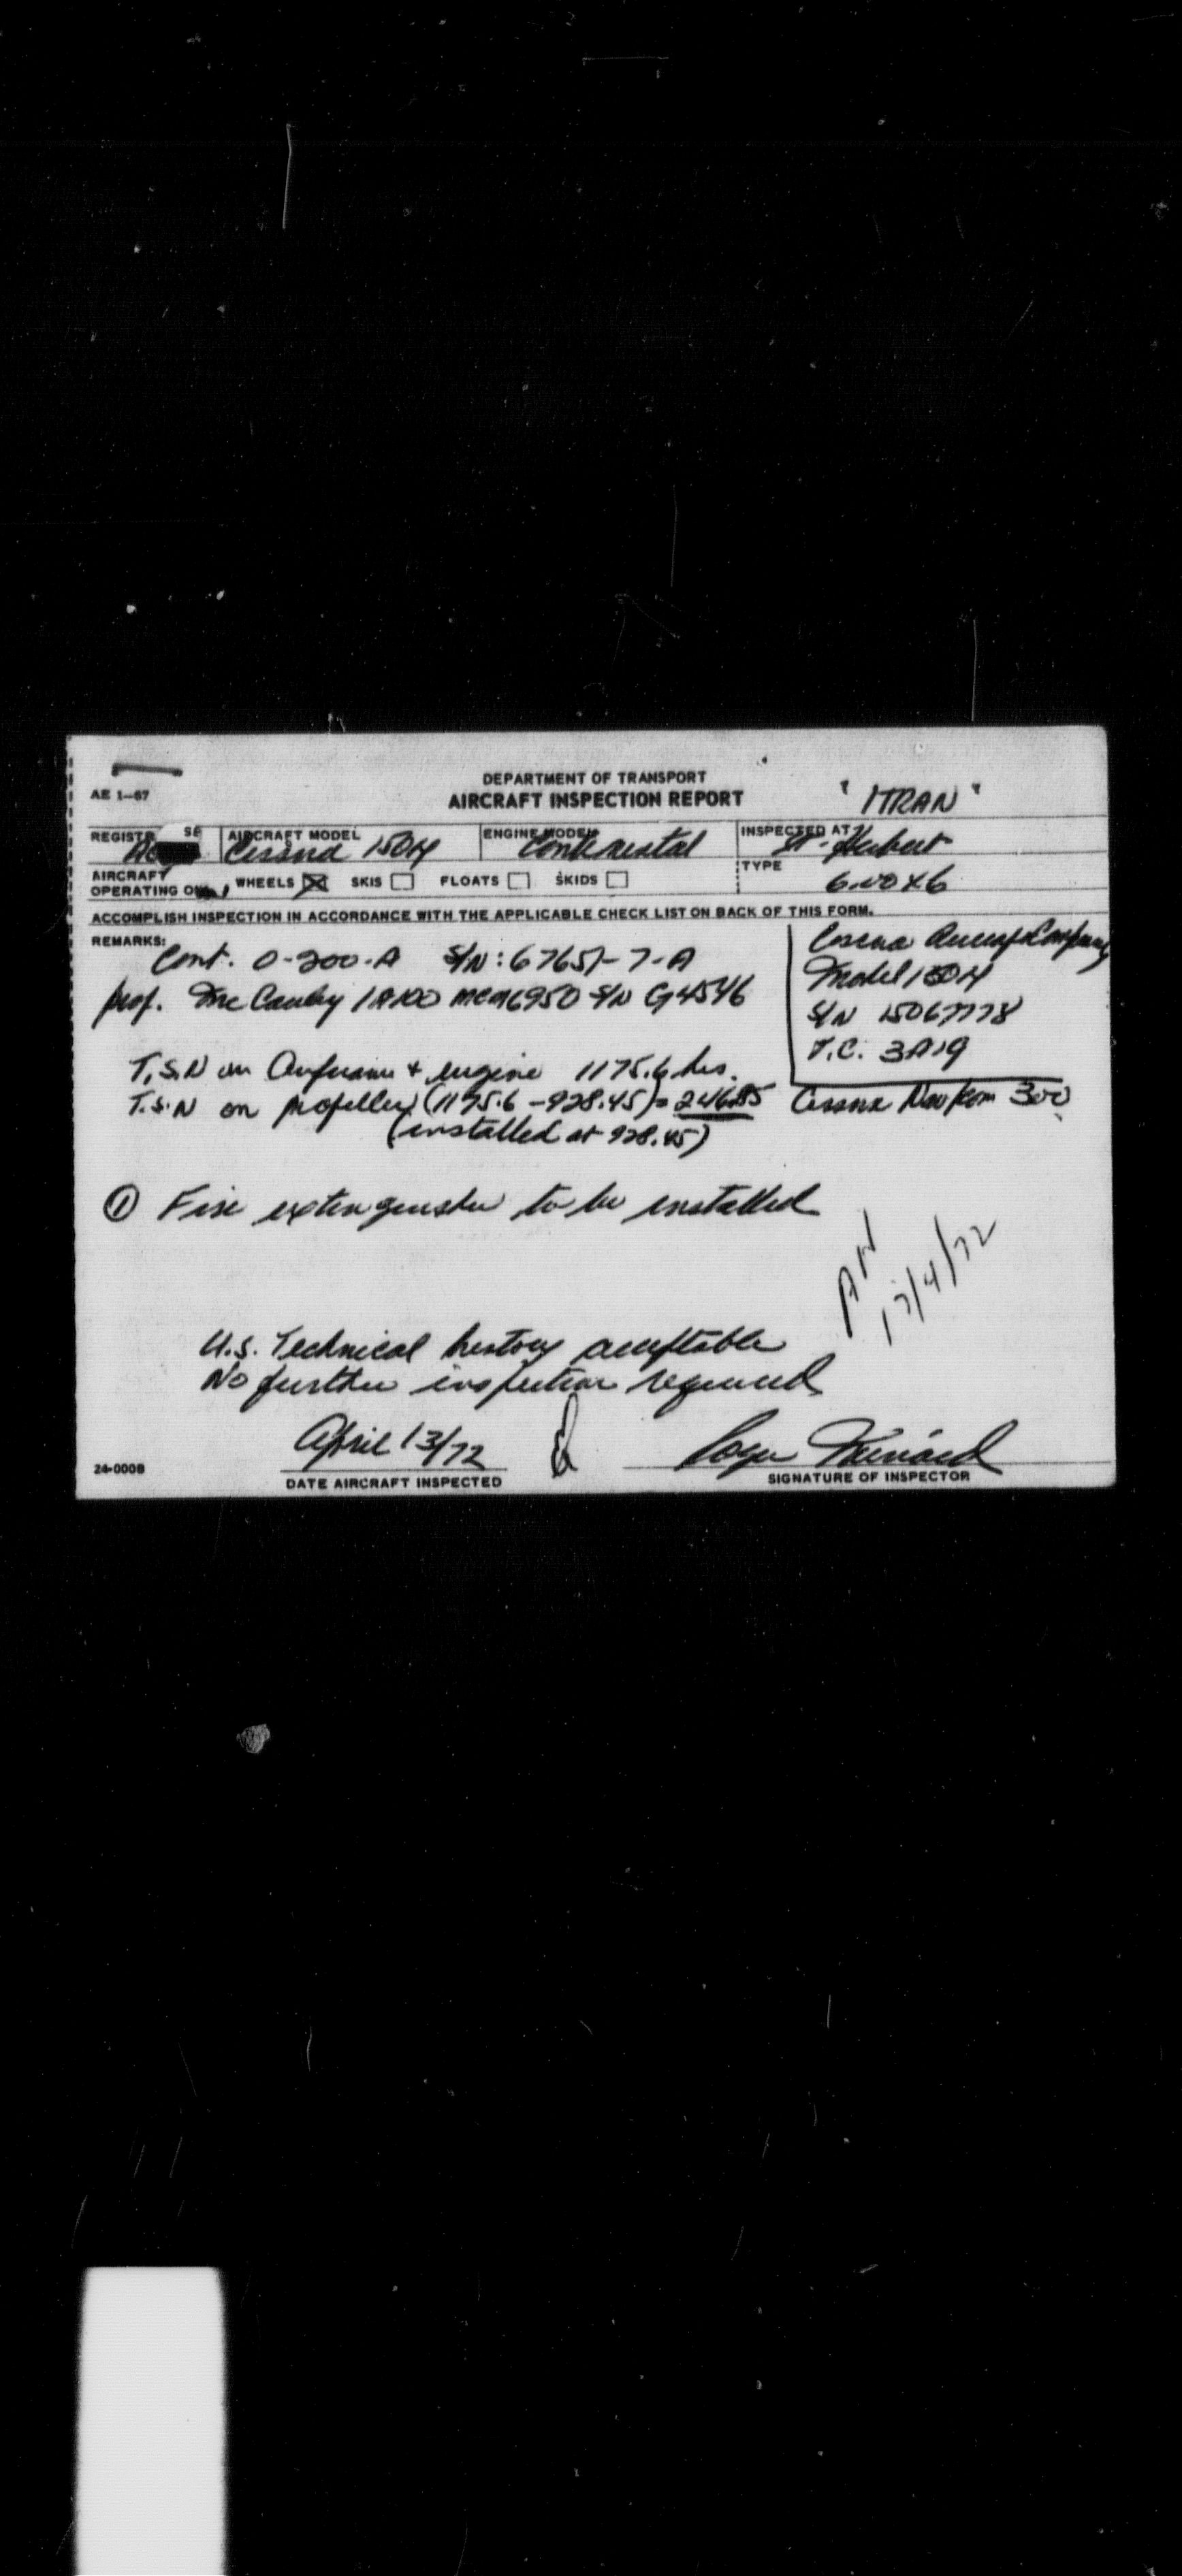 AE 1-67
DEPARTMENT OF TRANSPORT
AIRCRAFT INSPECTION REPORT
"ITRAN"
REGISTR SE
AIRCRAFT MODEL Cessna 150H
ENGINE MODEL Continental
INSPECTED AT St-Hubert
AIRCRAFT OPERATING ON WHEELS ☒ SKIS ☐ FLOATS ☐ SKIDS ☐
TYPE 6.00 x 6
ACCOMPLISH INSPECTION IN ACCORDANCE WITH THE APPLICABLE CHECK LIST ON BACK OF THIS FORM.
REMARKS:
Cont. O-200-A S/N: 67651-7-A
prop. McCauley 1A100 MCM6950 S/N G4546
Cessna Company
Model 150H
S/N 15067778
T.C. 3A19
T.S.N on Airframe + engine 1175.6 hrs.
T.S.N on propeller (1175.6 - 928.45) = 246.85
(installed at 928.45)
Cessna Nav/Com 300
① Fire extinguisher to be installed
/4/72
U.S. Technical history acceptable
No further inspection required
April 13/72
Roger
24-0008
DATE AIRCRAFT INSPECTED
SIGNATURE OF INSPECTOR